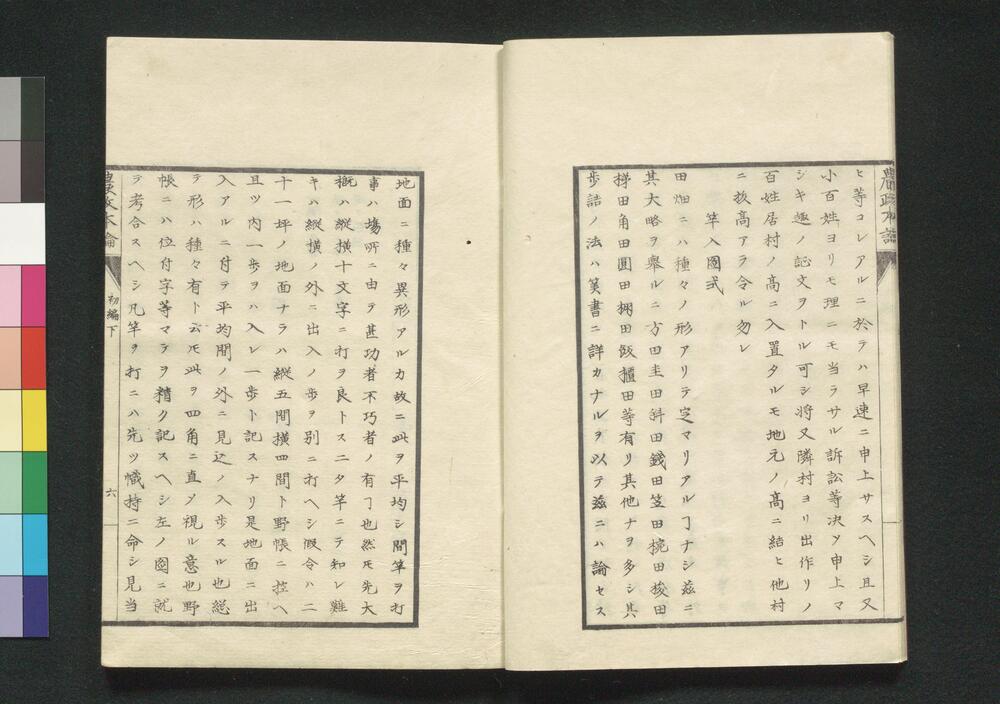 農政本論
ヒ等コレアルニ於テハ早速ニ申上サスヘシ且又
小百姓ヨリモ理ニモ当ラサル訴訟等决ソ申上マ
シキ趣ノ証文ヲトル可シ将又隣村ヨリ出作リノ
百姓居村ノ高ニ入置タルモ地元ノ高ニ結ヒ他村
ニ抜高アラ令ル勿レ
竿入圖式
田畑ニハ種々ノ形アリテ定マリアルヿナシ茲ニ
其大略ヲ舉ルニ方田圭田斜田錢田笠田椀田梭田
梯田角田圓田棚田飯櫃田等有リ其他ナヲ多シ其
歩詰ノ法ハ筭書ニ詳カナルヲ以テ茲ニハ論セス
地面ニ種々異形アルカ故ニ此ヲ平均シ間竿ヲ打
事ハ場所ニ由テ甚功者不巧者ノ有ヿ也然𪜈先大
概ハ縦横十文字ニ打ヲ良トスニタ竿ニテ知レ難
キハ縦横ノ外ニ出入ノ歩ヲ別ニ打ヘシ假令ハ二
十一坪ノ地面ナラハ縦五間横四間ト野帳ニ控ヘ
且ツ内一歩ヲハ入レ一歩ト記スナリ是地面ニ出
入アルニ付テ平均間ノ外ニ見込ノ入歩スル也総
テ形ハ種々有ト云𪜈此ヲ四角ニ直ソ視ル意也野
帳ニハ位付字等マテヲ精ク記スヘシ左ノ図ニ就
テ考合スヘシ凡竿ヲ打ニハ先ツ幟持ニ命シ見当
農政本論
初編下
六